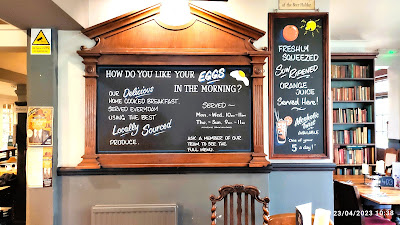 HOW DO YOU LIKE YOUR EGGS
IN THE MORNING?
OUR Delicious
HOME COOKED BREAKFAST,
SERVED EVERYDAY
USING THE BEST
Locally Sourced
PRODUCE.
SERVED~
Mon - Wed, 10am-11am
Thu - Sun, 9am - 11am
ASK A MEMBER OF OUR
TEAM TO SEE THE
FULL MENU.
FRESHLY
SQUEEZED
SUN RIPENED
ORANGE
JUICE
Served Here!
Alcoholic
AVAILABLE
One of your
5 a day!
23/04/2023 10:38